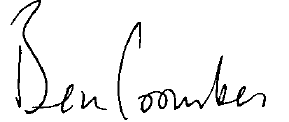 Ben Coomber